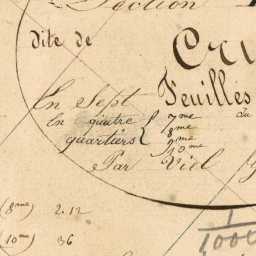 Section
dite de
Cru
En Sept Feuilles
En quatre quartiers { 7me du
8me
9me
10me
Par Viel
(8me) 2.12
(10me) 36
1/1000